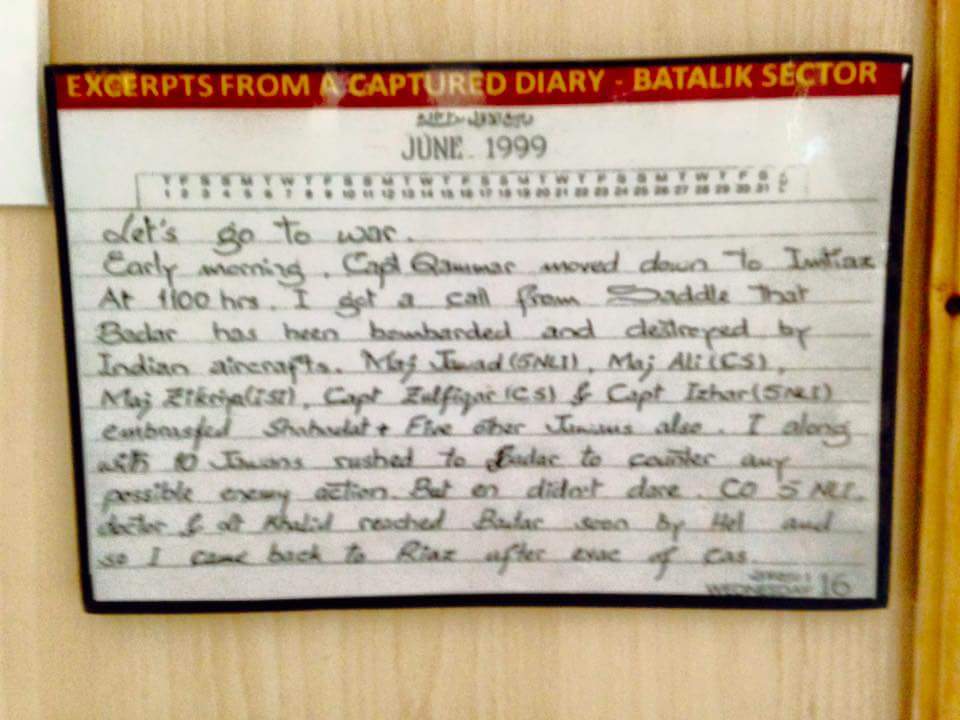 EXCERPTS FROM A CAPTURED DIARY - BATALIK SECTOR
JUNE 1999
T F S S M T W T F S S M T W T F S S M T W T F S S M T W T F S
1 2 3 4 5 6 7 8 9 10 11 12 13 14 15 16 17 18 19 20 21 22 23 24 25 26 27 28 29 30 31
Let's go to war.
Early morning, Capt Qammar moved down to Imtiaz
At 1100 hrs. I got a call from Saddle that
Badar has been bombarded and destroyed by
Indian aircrafts. Maj Jawad (5NLI), Maj Ali (CS),
Maj Zikriya (ISI), Capt Zulfiqar (CS) & Capt Izhar (5NLI)
embrassed Shahadat + Five other Jawans also. I along
with 10 Jawans rushed to Badar to counter any
possible enemy action. But en didn't dare. CO 5 NLI.
doctor & Lt Khalid reached Badar soon by Hel and
so I came back to Riaz after evac of cas.
WEDNESDAY 16